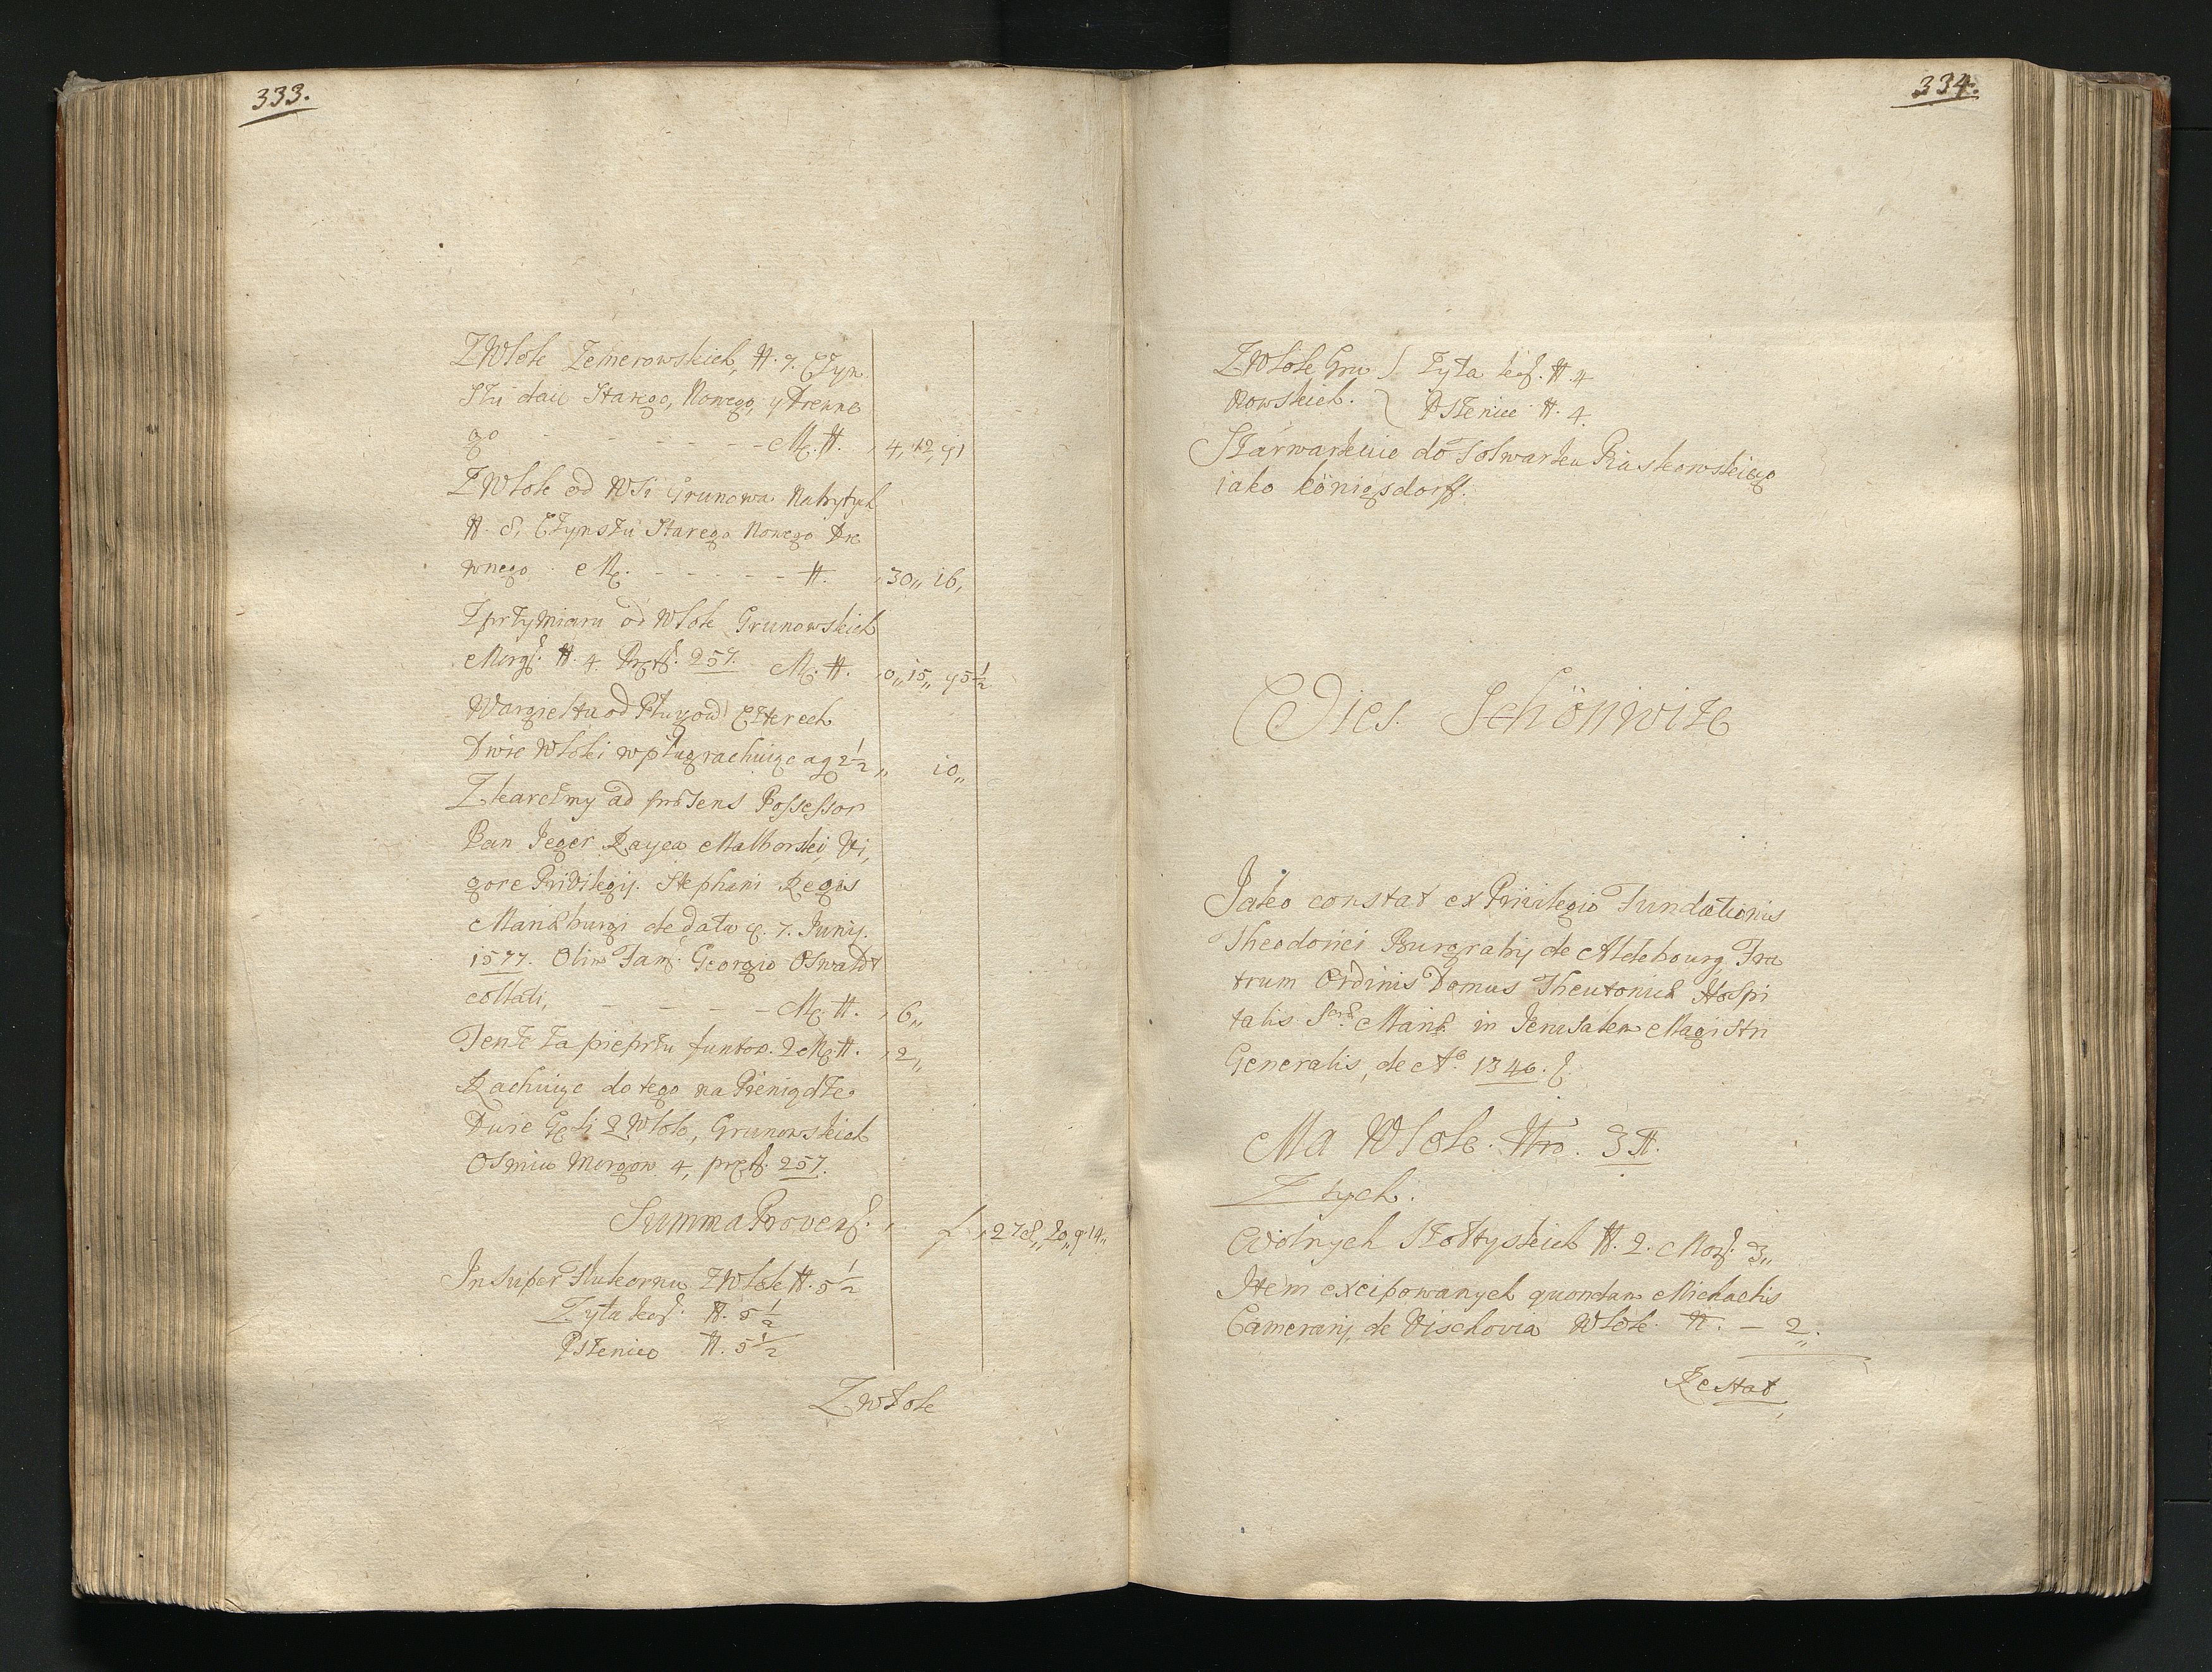 333.
Z Wlok Zemerowskich, N. 7. Czyn
szu daie Starego, Nowego, y Drewne
go - - - - - - M. N. 4, 12, g 1
Z Wlok od Wsi Grunowa Nabytych
N. 8, Czynszu Starego Nowego Dre
wnego. M. - - - - - N. 30,, 16,
Z przymiaru od Wlok Grunowskich
Morg. N. 4. Pręt. 257. M. N. 0,, 15,, g 5 1/2
Wargieltu od Pługow Czterech
Dwie Wloki w pług rachuiąc a g 2 1/2 ,, 10,,
Z karczmy ad præsens Possessor
Pan Jeger Rayca Malborski, Vi,
gore Privilegij. Stephani Regis
Mariæburgi de data 7. Junij.
1577. Olim Fam. Georgio Oswaldt
collati, - - - - M. N. 6,,
Tenże za pieprzu funtow. 2 M. N. 2,,
Rachuiąc do tego na Pieniądze
Dwie Gęsi 2 Wlok, Grunowskich
Osmiu Morgow 4, pręt. 257.
Summa Provent. f 278,, 20,, g. 14,,
In super Płukornu Z Wlok N. 5 1/2
Zyta kor. N. 5 1/2
Pszenice N. 5 1/2
Z wlok
334.
Z Wlok Gru } Zyta kor. N. 4
nowskich. } Pszenice N. 4
Szarwarkuie do Folwarku Piaskowskiego
iako Königsdorff.
Wies. Schönwize
Jako constat ex Privilegio Fundationis
Theodorici Burgrabij de Aldebourg, Fra
trum Ordinis Domus Theutonicæ Hospi
talis Sctæ Mariæ in Jerusalem Magistri
Generalis, de Ao. 1340.
Ma Wlok. Nro.
Z tych.
Wolnych Szołtyskich N. 2. Morg. 3,,
Item excipowanych quondam Michaelis
Camerarij, de Vischovia Wlok. N. - 2.
Restat